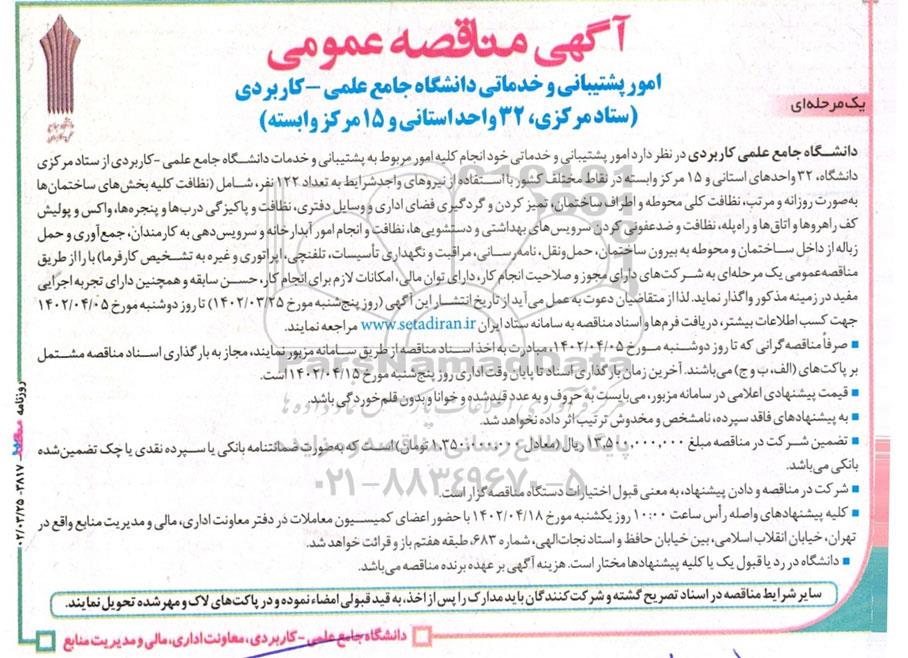 آگهی مناقصه عمومی
امور پشتیبانی و خدماتی دانشگاه جامع علمی - کاربردی
(ستاد مرکزی، ۳۲ واحد استانی و ۱۵ مرکز وابسته)
یک مرحله‌ای
دانشگاه جامع علمی کاربردی در نظر دارد امور پشتیبانی و خدماتی خود انجام کلیه امور مربوط به پشتیبانی و خدمات دانشگاه جامع علمی -کاربردی از ستاد مرکزی
دانشگاه، ۳۲ واحدهای استانی و ۱۵ مرکز وابسته در نقاط مختلف کشور با استفاده از نیروهای واجد شرایط به تعداد ۱۲۲ نفر، شامل (نظافت کلیه بخش‌های ساختمان‌ها
به‌صورت روزانه و مرتب، نظافت کلی محوطه و اطراف ساختمان، تمیز کردن و گردگیری فضای اداری و وسایل دفتری، نظافت و پاکیزگی درب‌ها و پنجره‌ها، واکس و پولیش
کف راهروها و اتاق‌ها و راه‌پله، نظافت و ضدعفونی کردن سرویس‌های بهداشتی و دستشویی‌ها، نظافت و انجام امور آبدارخانه و سرویس‌دهی به کارمندان، جمع‌آوری و حمل
زباله از داخل ساختمان و محوطه به بیرون ساختمان، حمل‌ونقل، نامه‌رسانی، مراقبت و نگهداری تأسیسات، تلفنچی، اپراتوری و غیره به تشخیص کارفرما) با را از طریق
مناقصه‌عمومی یک مرحله‌ای به شرکت‌های دارای مجوز و صلاحیت انجام کار، دارای توان مالی، امکانات لازم برای انجام کار، حسن سابقه و همچنین دارای تجربه اجرایی
مفید در زمینه مذکور واگذار نماید. لذا از متقاضیان دعوت به عمل می‌آید از تاریخ انتشار این آگهی (روز پنج‌شنبه مورخ ۱۴۰۲/۰۳/۲۵) تا روز دوشنبه مورخ ۱۴۰۲/۰۴/۰۵
جهت کسب اطلاعات بیشتر، دریافت فرم‌ها و اسناد مناقصه به سامانه ستاد ایران www.setadiran.ir مراجعه نمایند.
▪ صرفاً مناقصه‌گرانی که تا روز دوشنبه مورخ ۱۴۰۲/۰۴/۰۵، مبادرت به اخذ اسناد مناقصه از طریق سامانه مزبور نمایند، مجاز به بارگذاری اسناد مناقصه مشتمل
بر پاکت‌های (الف، ب و ج) می‌باشند. آخرین زمان بارگذاری اسناد تا پایان وقت اداری روز پنج‌شنبه مورخ ۱۴۰۲/۰۴/۱۵ است.
▪ قیمت پیشنهادی اعلامی در سامانه مزبور، می‌بایست به حروف و به عدد قید شده و خوانا و بدون قلم‌خوردگی باشد.
▪ به پیشنهادهای فاقد سپرده، نامشخص و مخدوش ترتیب اثر داده نخواهد شد.
▪ تضمین شرکت در مناقصه مبلغ ۱۳,۵۰۰,۰۰۰,۰۰۰ ریال (معادل ۱,۳۵۰,۰۰۰,۰۰۰ تومان) است که به‌صورت ضمانتنامه بانکی یا سپرده نقدی یا چک تضمین شده
بانکی می‌باشد.
▪ شرکت در مناقصه و دادن پیشنهاد، به معنی قبول اختیارات دستگاه مناقصه‌گزار است.
▪ کلیه پیشنهادهای واصله رأس ساعت ۱۰:۰۰ روز یکشنبه مورخ ۱۴۰۲/۰۴/۱۸ با حضور اعضای کمیسیون معاملات در دفتر معاونت اداری، مالی و مدیریت منابع واقع در
تهران، خیابان انقلاب اسلامی، بین خیابان حافظ و استاد نجات‌الهی، شماره ۶۸۳، طبقه هفتم باز و قرائت خواهد شد.
▪ دانشگاه در رد یا قبول یک یا کلیه پیشنهادها مختار است. هزینه آگهی بر عهده برنده مناقصه می‌باشد.
سایر شرایط مناقصه در اسناد تصریح گشته و شرکت‌کنندگان باید مدارک را پس از اخذ، به قید قبولی امضاء نموده و در پاکت‌های لاک و مهر شده تحویل نمایند.
دانشگاه جامع علمی - کاربردی، معاونت اداری، مالی و مدیریت منابع
روزنامه مناقصه - ۳۸۱۷ - ۰۲/۰۳/۲۵
ParsNamadData
پایگاه اطلاع رسانی مناقصه و مزایده
۰۲۱-۸۸۳۴۹۶۷۰-۵